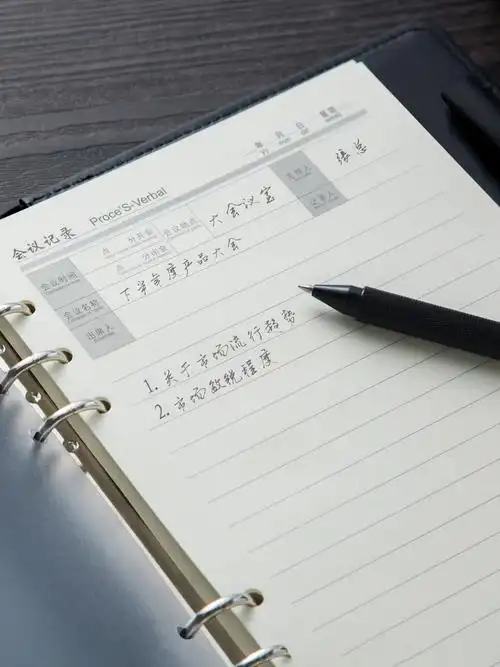 年 月 日 星期
会议记录 Proce'S-Verbal
会议时间 点 分开会 会议地点 大会议室 主持人 张总
点 分闭会 记录人
会议名称 下半年度产品大会
出席人
1. 关于市场流行趋势
2. 市场敏锐程度